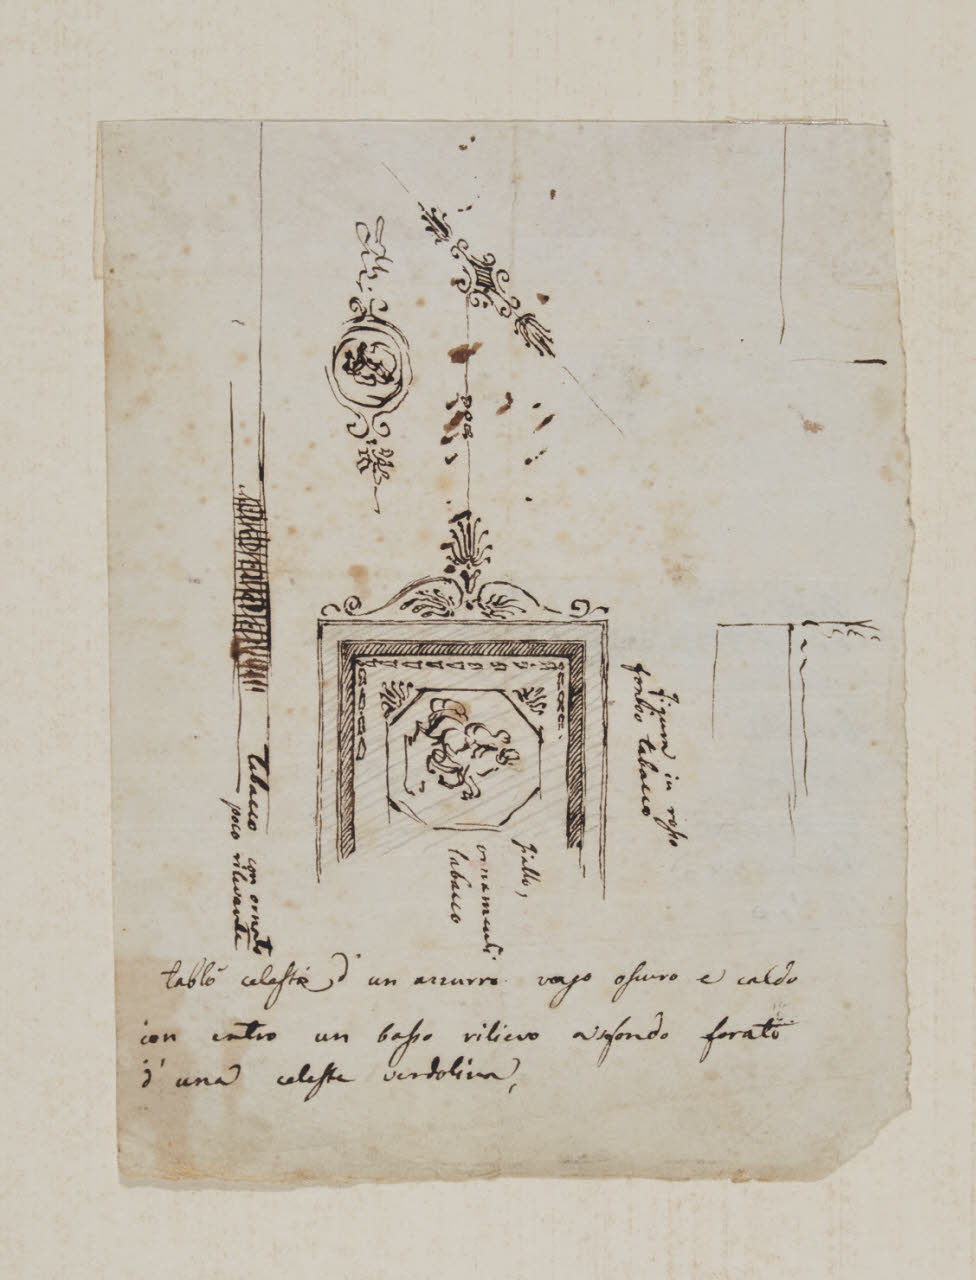 figura in rosso
fondo tabacco
giallo,
ornamenti
tabacco
tabacco con ornato
poco rilevante
tablò celeste d'un azzurro vago oscuro e caldo
con entro un basso rilievo a fondo forato
d'una celeste verdolina,